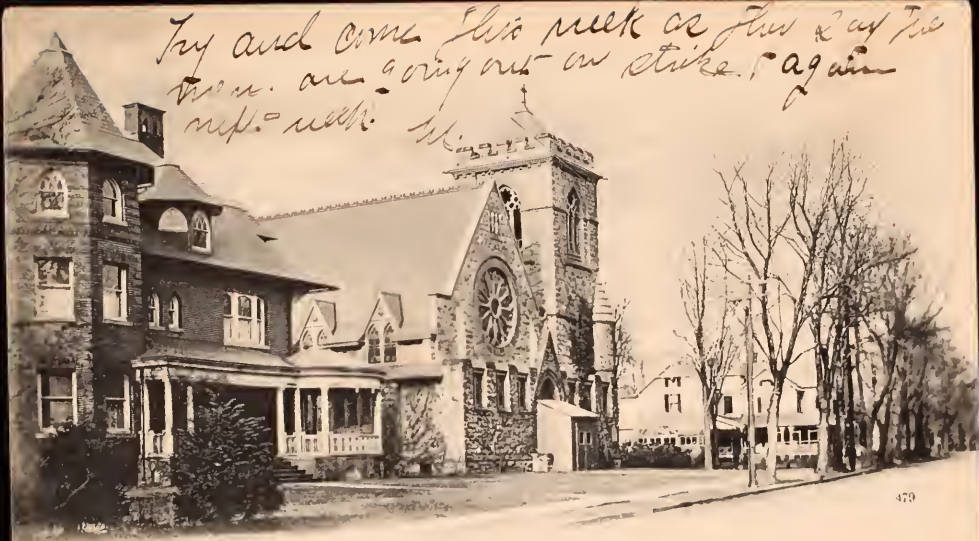 Try and come this week as they say the
men are going out on strike again
next week.
479